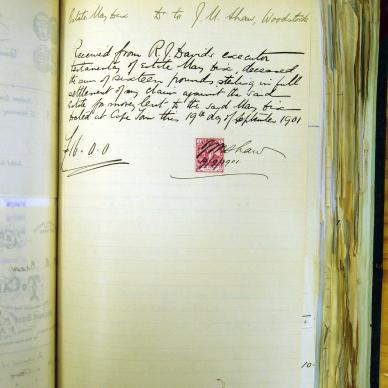 Estate May Dix Dr to J. M. Shaw, Woodstock
Received from R. J. Davids executor
testamentary of Estate May Dix, deceased
the sum of sixteen pounds sterling in full
settlement of my claim against the said
Estate for money lent to the said May Dix
Dated at Cape Town this 19th day of September 1901
£16-0-0
J M Shaw
19/9/1901
10